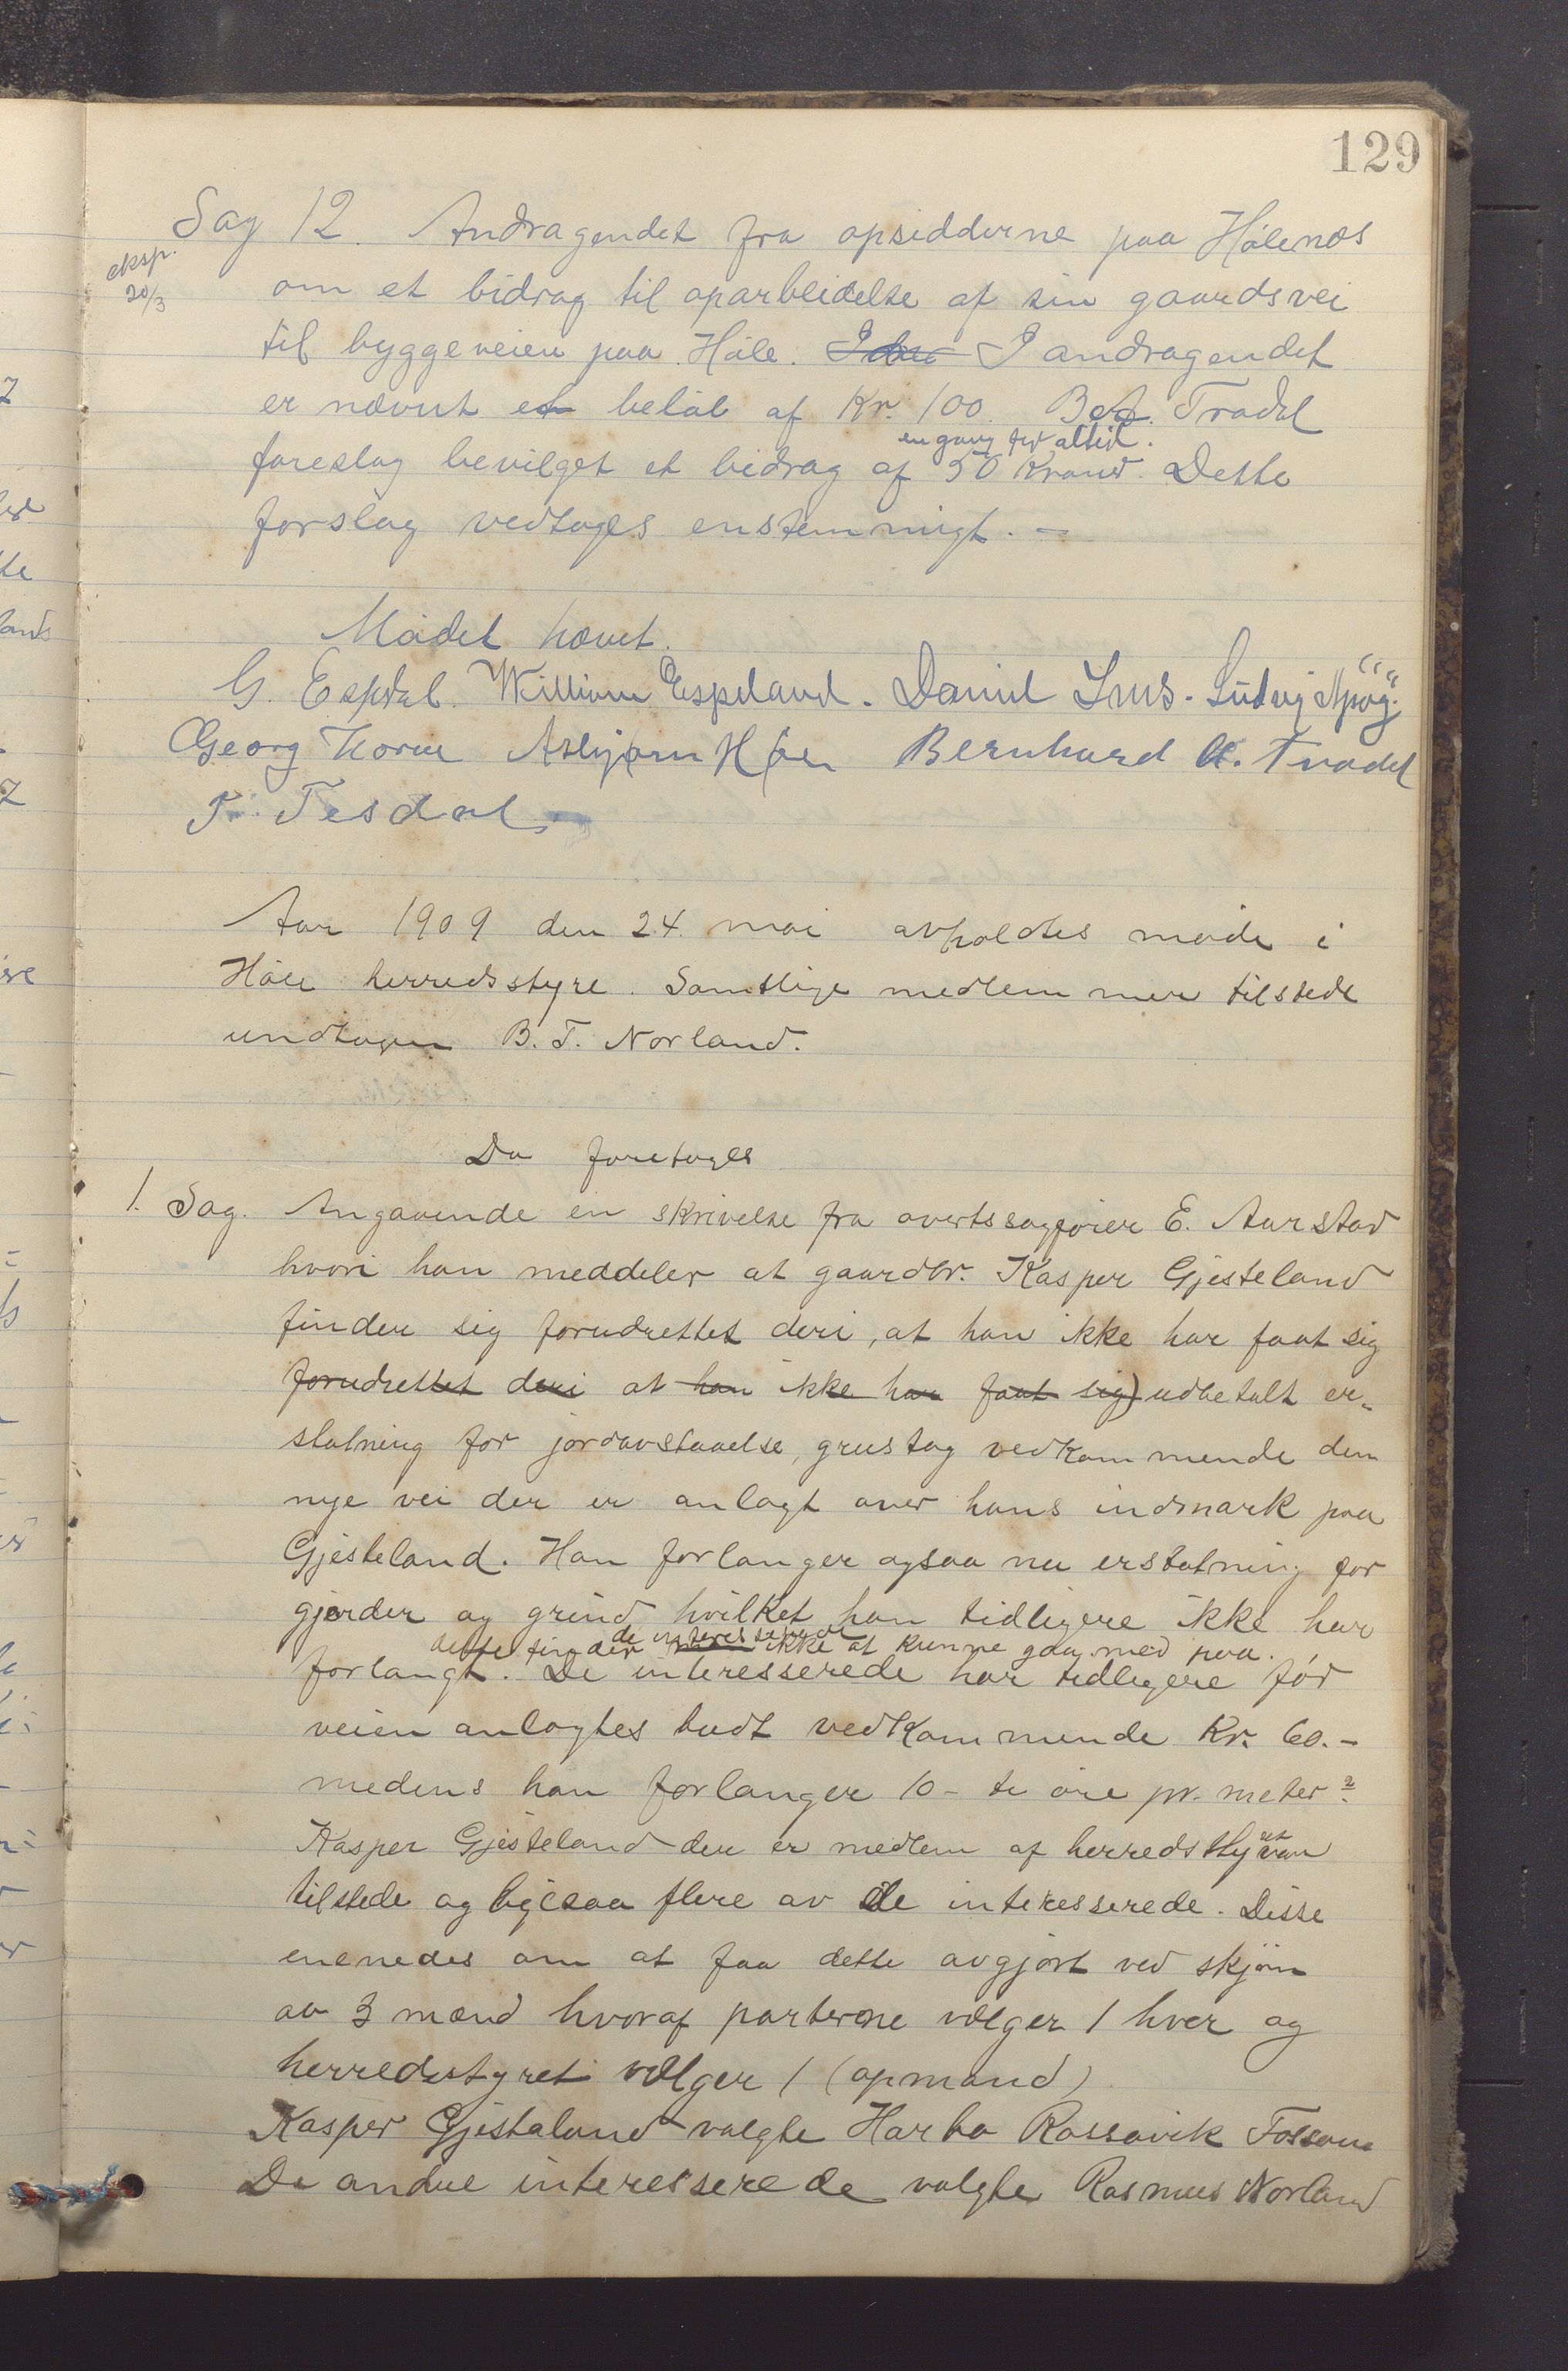 129
Sag 12. Andragendet fra opsidderne paa Hölenæs
eksp. 20/3
om et bidrag til oparbeidelse af sin gaardsvei
til byggeveien paa Höle. I andragendet
er nævnt et belöb af Kr. 100. Trodal
en gang for alltid.
foreslog bevilget et bidrag af 50 Kroner. Dette
forslag vedtoges enstemmigt. –
Mödet hævet.
G. Espdal. William Espeland. Daniel Ims. Ludvig
Georg Asbjørn Bernhard Trodal
T. Tesdal
Aar 1909 den 24. mai avholdtes möde i
Höle herredsstyre. Samtlige medlemmer tilstede
undtagen B. T. Norland.
Da foretoges
1. Sag. Angaaende en skrivelse fra overtssagförer E. Aarstad
hvori han meddeler at gaardbr. Kasper Gjesteland
finder sig forudrettet deri, at han ikke har faat sig
forudrettet deri at han ikke har faat sig) udbetalt er-
statning for jordavstaaelse, grustag vedkommende den
nye vei der er anlagt over hans indmark paa
Gjesteland. Han forlanger ogsaa nu erstatning for
gjerder og grind hvilket han tidligere ikke har
dette finder de interesserede ikke at kunne gaa med paa.
forlangt. De interesserede har tidligere för
veien anlagtes budt vedkommende Kr. 60.–
medens han forlanger 10 – ti öre pr. meter².
Kasper Gjesteland der er medlem af herredsstyret var
tilstede og ligesaa flere av de interesserede. Disse
enenedes om at faa dette avgjort ved skjön
av 3 mænd hvoraf parterne vælger 1 hver og
herredsstyret vælger 1 (opmand)
Kasper Gjestaland valgte Rossavik
De andre interesserede valgte Rasmus Norland